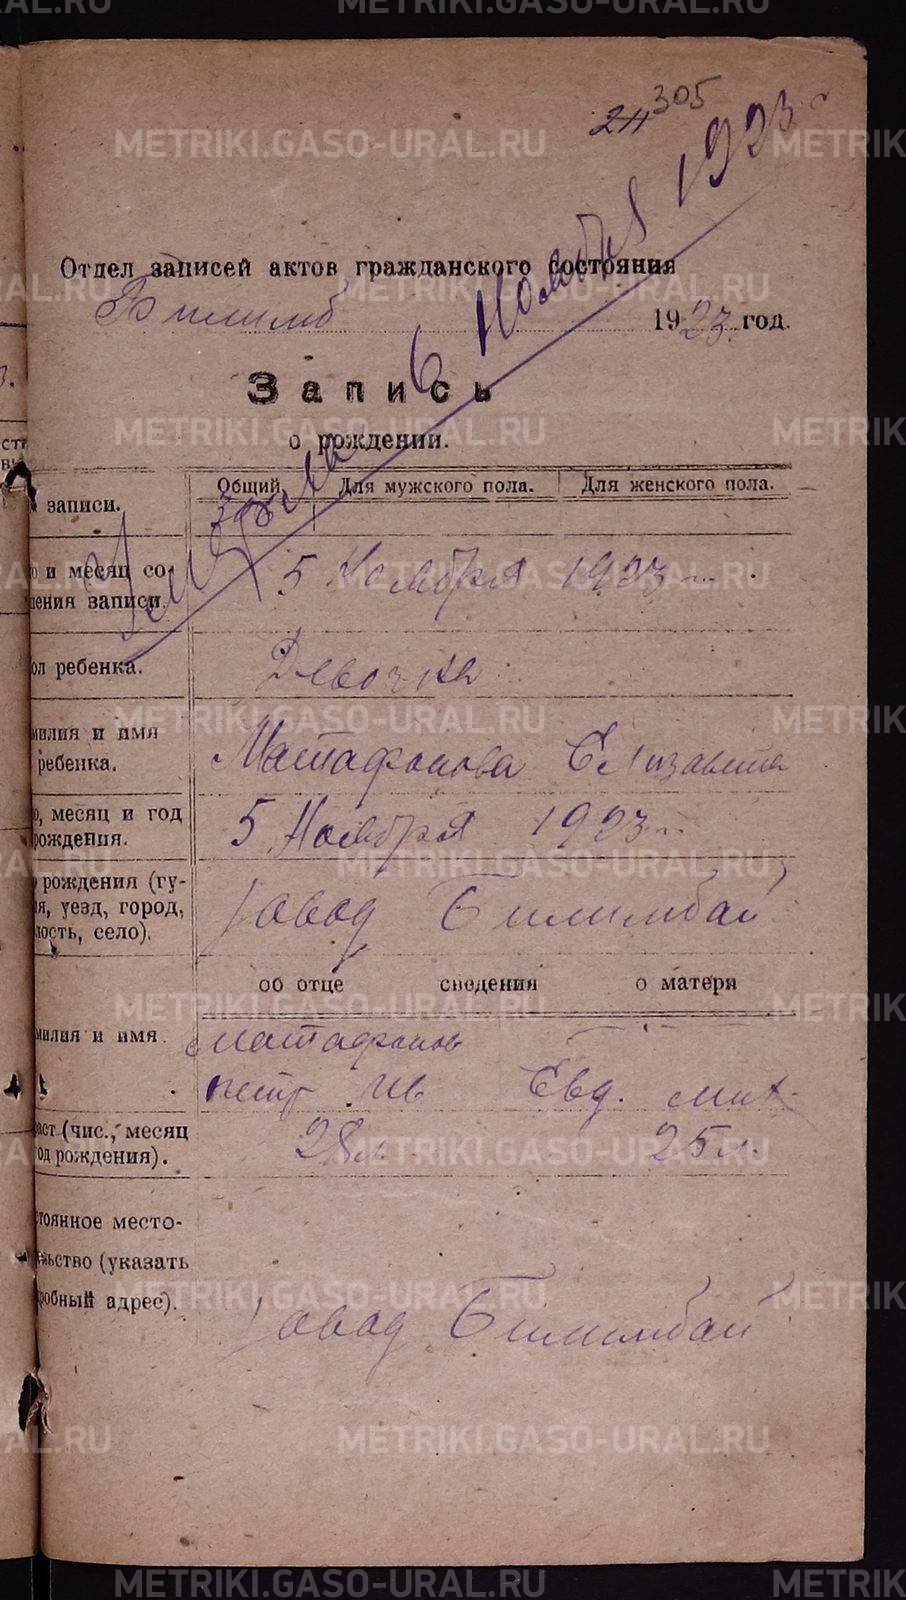 305
211
Отдел записей актов гражданского состояния
Билимб 1923 год.
Умерла 6 Ноября 1923 г
Запись
о рождении.
Общий. Для мужского пола. Для женского пола.
записи.
и месяц со-
шения записи.
5 Ноября 1923 г.
ол ребенка.
Девочка
милия и имя
ребенка.
Матафонова Елизавета
о, месяц и год
рождения.
5 Ноября 1923 г.
рождения (гу-
ия, уезд, город,
лость, село).
Завод Билимбай
об отце сведения о матери
милия и имя
Матафонов — " —
Петр Ив Евд. Мих.
раст (чис., месяц
од рождения).
28 л. 25 л.
стоянное место-
ельство (указать
робный адрес).
Завод Билимбай
METRIKI.GASO-URAL.RU